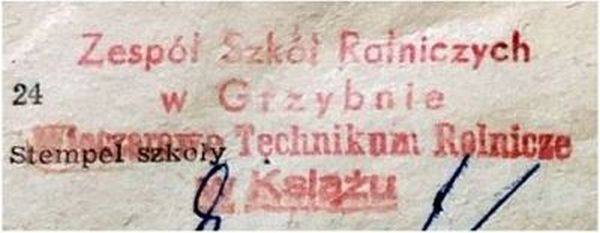 Zespół Szkół Rolniczych
24
w Grzybnie
Wieczorowe Technikum Rolnicze
Stempel szkoły
w Książu